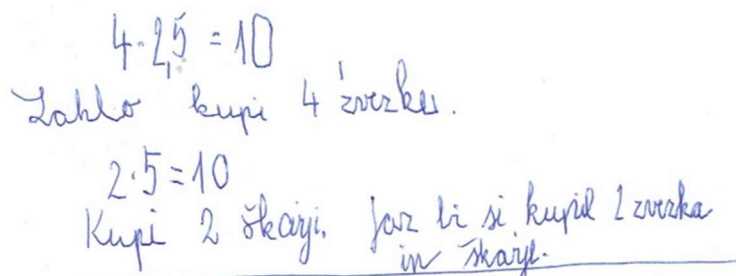 4·2,5 = 10
Lahko kupi 4 zvezke.
2·5=10
Kupi 2 škarji. Jaz bi si kupil 2 zvezka
in škarje.